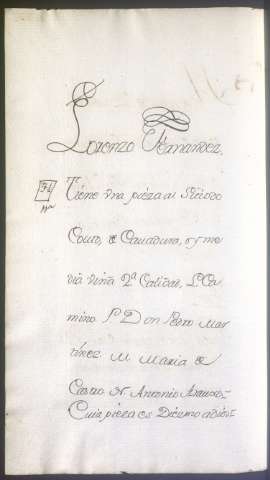 Lorenzo Fernandez
Tiene vna pieza al Sitio do
Couto, de Cauadura, y me
dia viña 2ª Calidad, L. Ca
mino P. Don Pedro Mar
tinez M Maria de
Castro N. Antonio
Cuia pieza es Diezmo a Dios